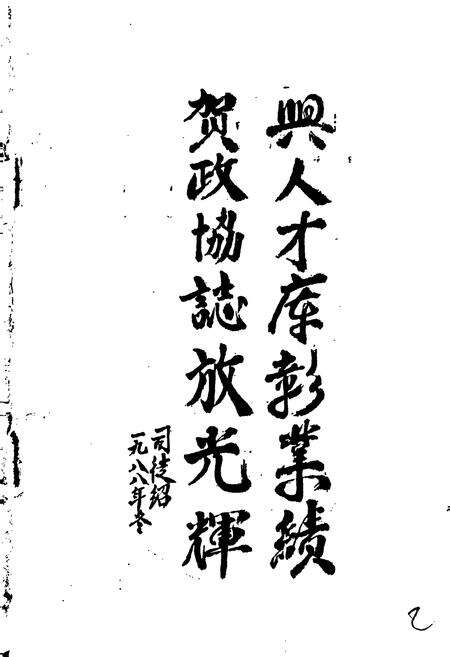 興人才庫彰業績
贺政協誌放光輝
司徒紹
一九八八年冬